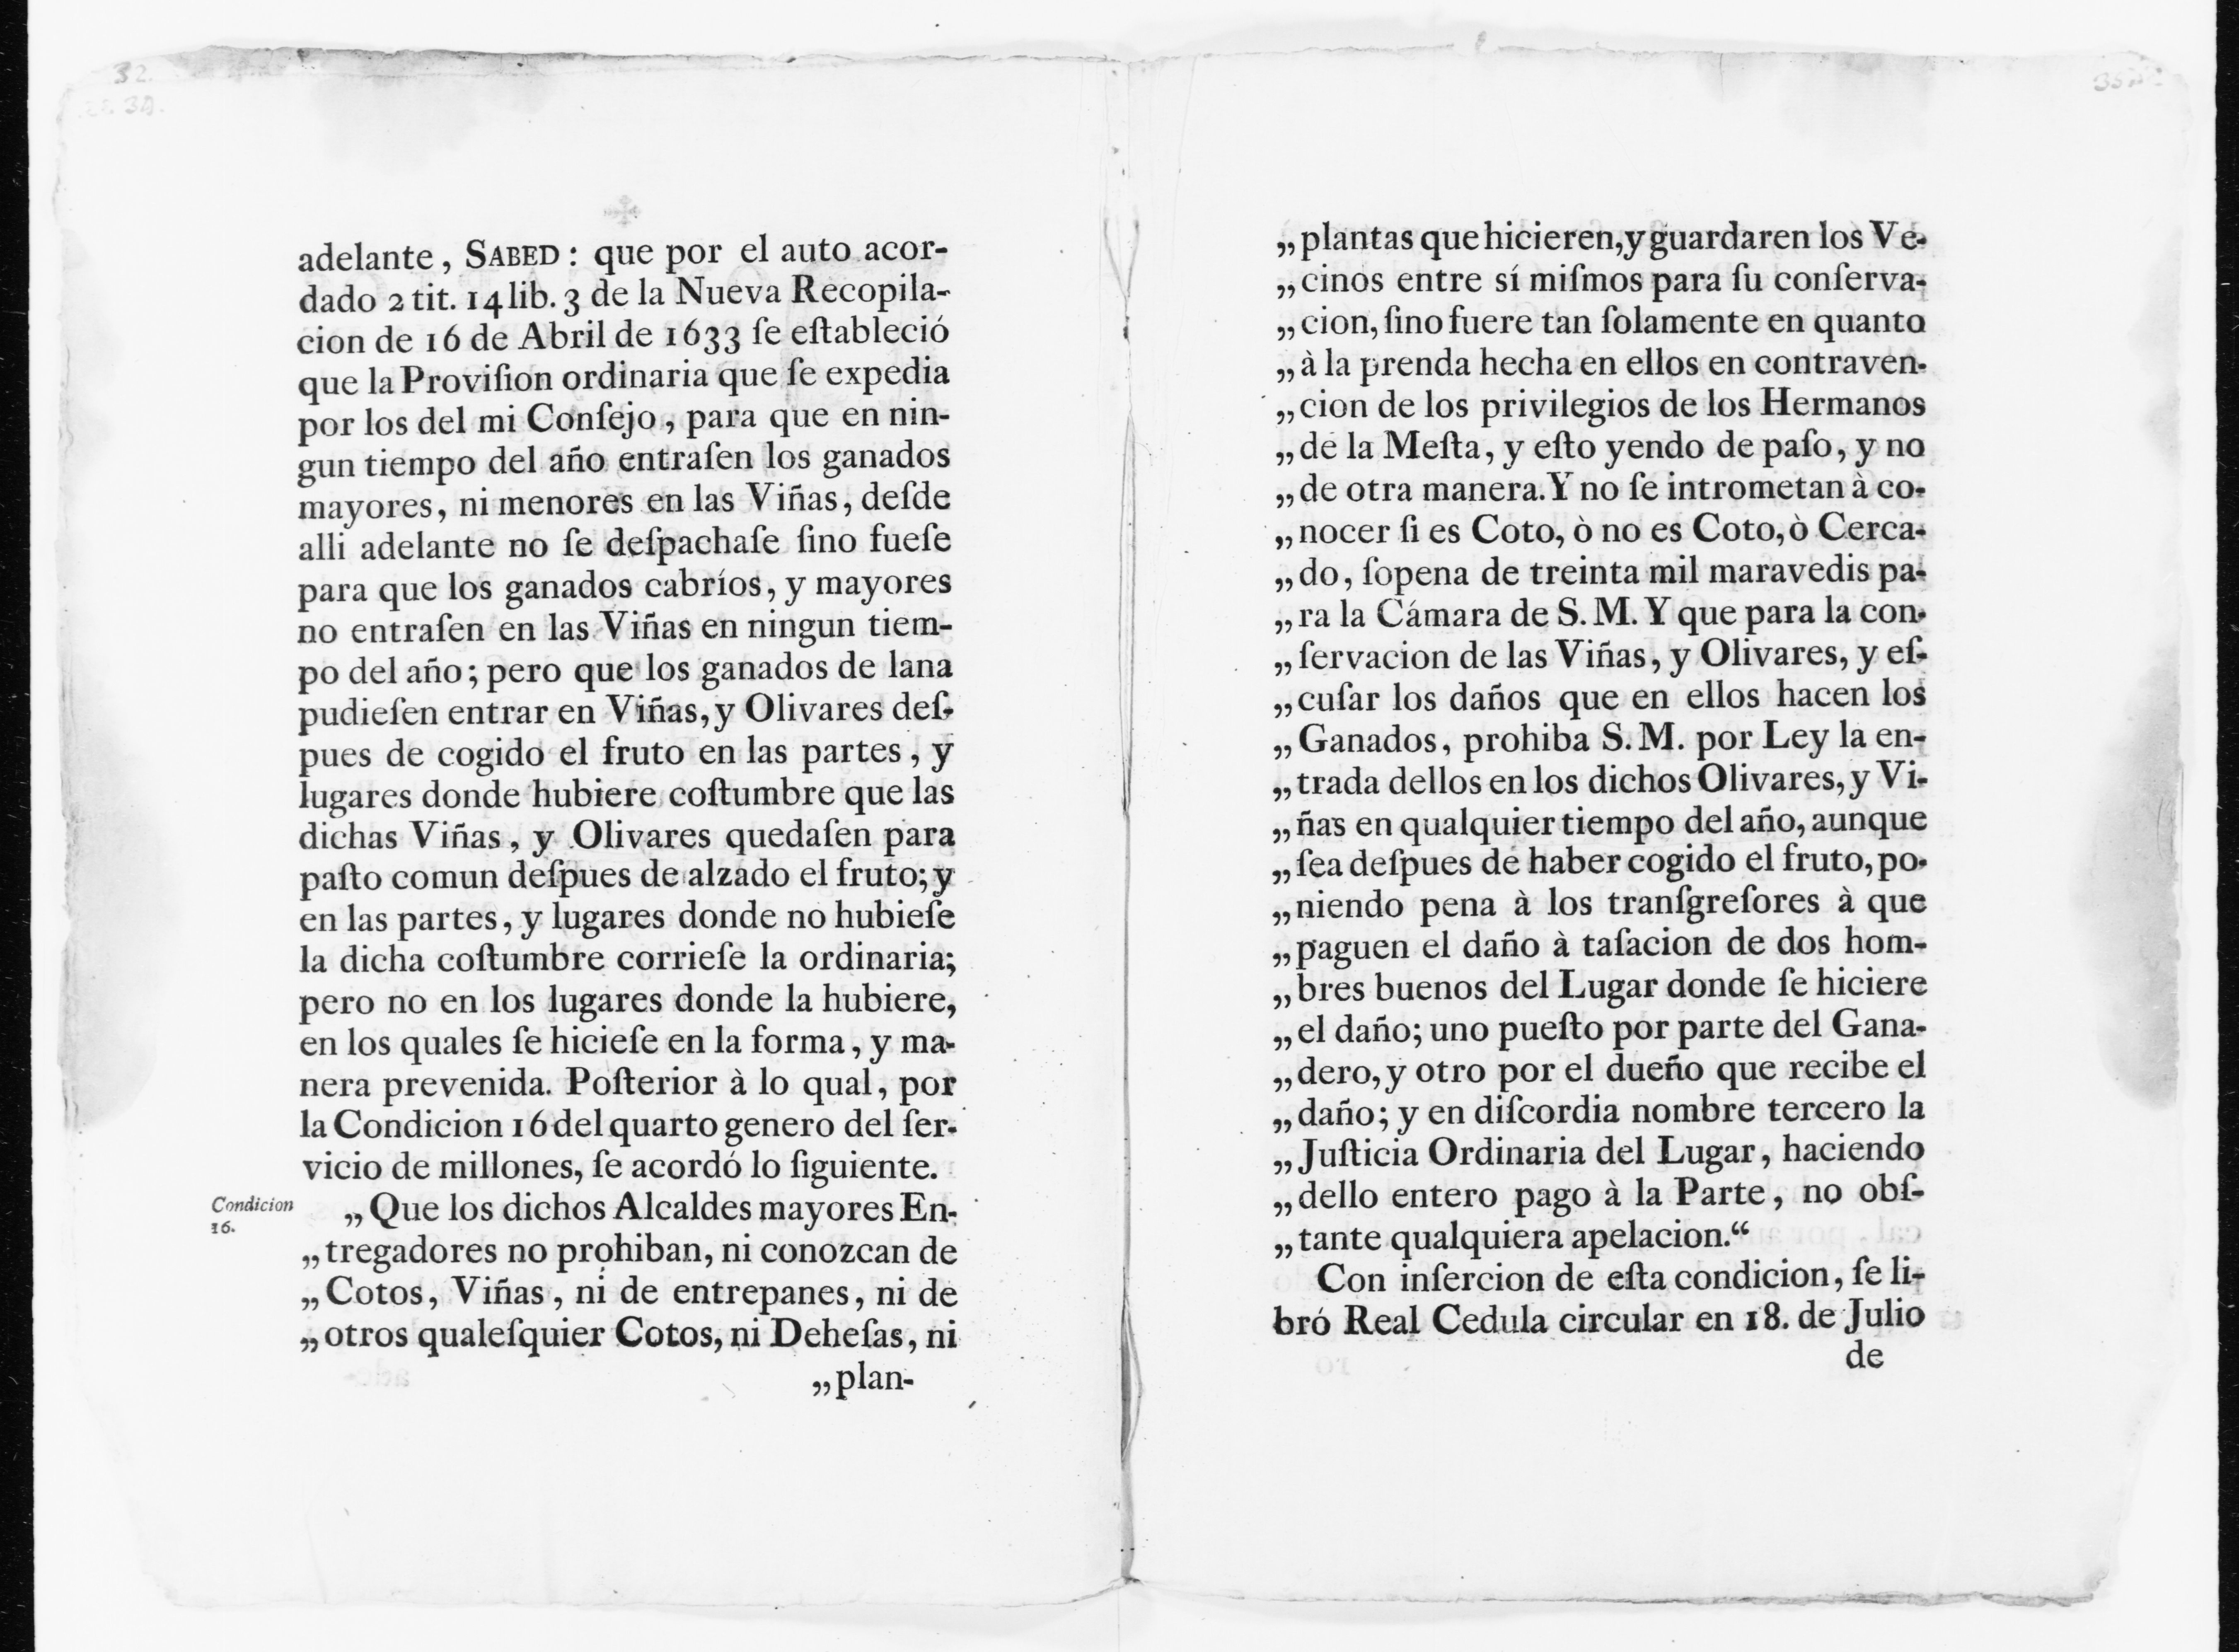 32.
34.
adelante, SABED: que por el auto acor-
dado 2 tit. 14 lib. 3 de la Nueva Recopila-
cion de 16 de Abril de 1633 ſe eſtableció
que la Proviſion ordinaria que ſe expedia
por los del mi Conſejo, para que en nin-
gun tiempo del año entraſen los ganados
mayores, ni menores en las Viñas, deſde
alli adelante no ſe deſpachaſe ſino fueſe
para que los ganados cabríos, y mayores
no entraſen en las Viñas en ningun tiem-
po del año; pero que los ganados de lana
pudieſen entrar en Viñas, y Olivares deſ-
pues de cogido el fruto en las partes, y
lugares donde hubiere coſtumbre que las
dichas Viñas, y Olivares quedaſen para
paſto comun deſpues de alzado el fruto; y
en las partes, y lugares donde no hubieſe
la dicha coſtumbre corrieſe la ordinaria;
pero no en los lugares donde la hubiere,
en los quales ſe hicieſe en la forma, y ma-
nera prevenida. Poſterior à lo qual, por
la Condicion 16 del quarto genero del ſer-
vicio de millones, ſe acordó lo ſiguiente.
Condicion
16.
„Que los dichos Alcaldes mayores En-
„tregadores no prohiban, ni conozcan de
„Cotos, Viñas, ni de entrepanes, ni de
„otros qualeſquier Cotos, ni Deheſas, ni
„plan-
„plantas que hicieren, y guardaren los Ve-
„cinos entre sí miſmos para ſu conſerva-
„cion, ſino fuere tan ſolamente en quanto
„à la prenda hecha en ellos en contraven-
„cion de los privilegios de los Hermanos
„de la Meſta, y eſto yendo de paſo, y no
„de otra manera. Y no ſe intrometan à co-
„nocer ſi es Coto, ò no es Coto, ò Cerca-
„do, ſopena de treinta mil maravedis pa-
„ra la Cámara de S. M. Y que para la con-
„ſervacion de las Viñas, y Olivares, y eſ-
„cuſar los daños que en ellos hacen los
„Ganados, prohiba S. M. por Ley la en-
„trada dellos en los dichos Olivares, y Vi-
„ñas en qualquier tiempo del año, aunque
„ſea deſpues de haber cogido el fruto, po-
„niendo pena à los tranſgreſores à que
„paguen el daño à taſacion de dos hom-
„bres buenos del Lugar donde ſe hiciere
„el daño; uno pueſto por parte del Gana-
„dero, y otro por el dueño que recibe el
„daño; y en diſcordia nombre tercero la
„Juſticia Ordinaria del Lugar, haciendo
„dello entero pago à la Parte, no obſ-
„tante qualquiera apelacion.“
Con inſercion de eſta condicion, ſe li-
bró Real Cedula circular en 18. de Julio
de